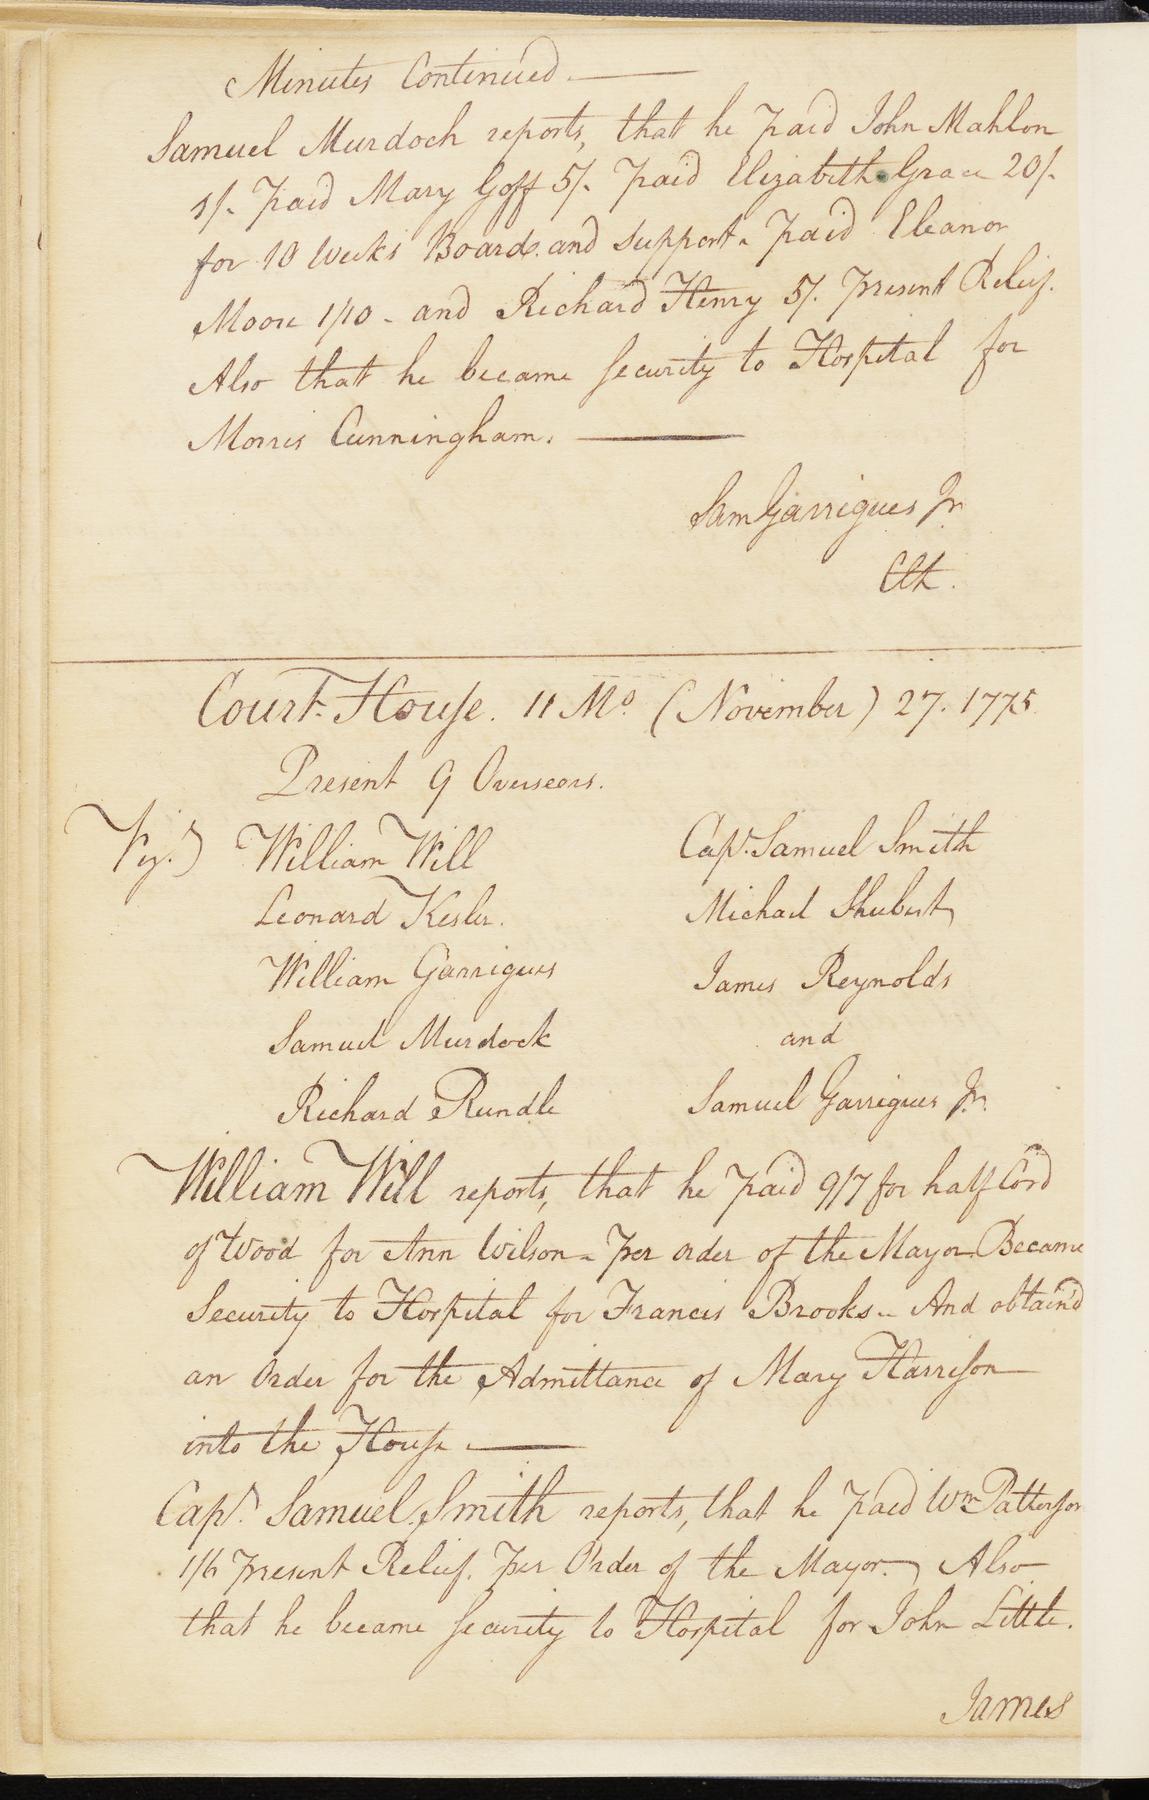 Minutes Continued.
Samuel Murdoch reports, that he paid John Mahlon
5/. paid Mary Goff 5/. paid Elizabeth Grace 20/.
for 10 Weeks Board and support. paid Eleanor
Moore 1/10 - and Richard Henry 5/. present Relief.
Also that he became security to Hospital for
Morris Cunningham.
Sam Garrigues Jr.
Clk.
Court-House. 11 Mo. (November) 27. 1775
Present 9 Overseers.
Viz.) William Will Capt. Samuel Smith
Leonard Kesler. Michael Shubert
William Garrigues James Reynolds
Samuel Murdock and
Richard Rundle Samuel Garrigues Jr.
William Will reports, that he paid 9/7 for half Cord
of Wood for Ann Wilson - per order of the Mayor. Became
Security to Hospital for Francis Brooks - And obtain'd
an Order for the Admittance of Mary Harrison
into the House.
Capt. Samuel Smith reports, that he paid Wm. Patterson
1/6 present Relief. per Order of the Mayor. Also
that he became security to Hospital for John Little.
James